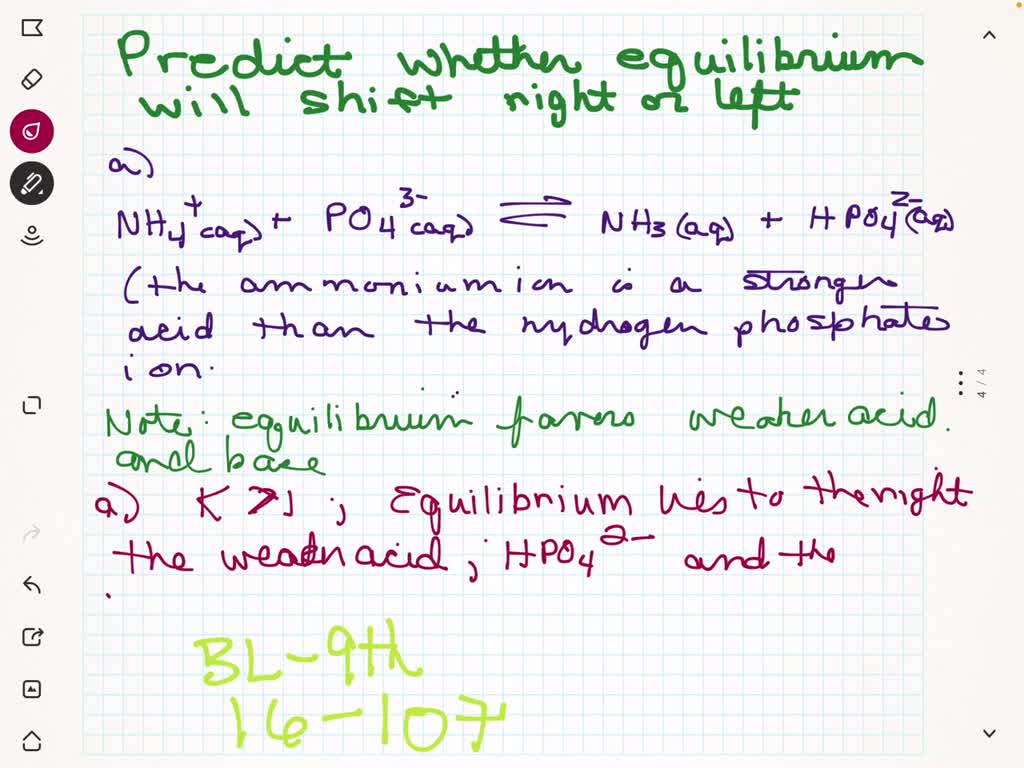 Predict whether equilibrium
will shift right or left
a)
NH4+(aq) + PO4 3-(aq) ⇌ NH3(aq) + HPO4 2-(aq)
(the ammonium ion is a stronger
acid than the hydrogen phosphate
ion.
Note: equilibrium favors weaker acid.
and base
a) K >1 ; Equilibrium lies to the right
the weaker acid ; HPO4 2- and the
BL-9th
16-107
4/4